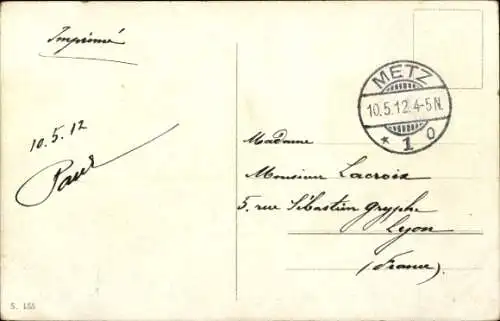 Imprimé
METZ
10.5.12.4-5N.
* 1 o
10.5.12
Paul
Madame
Monsieur Lacroix
5, rue Sébastien Gryphe
Lyon
(France)
S. 155